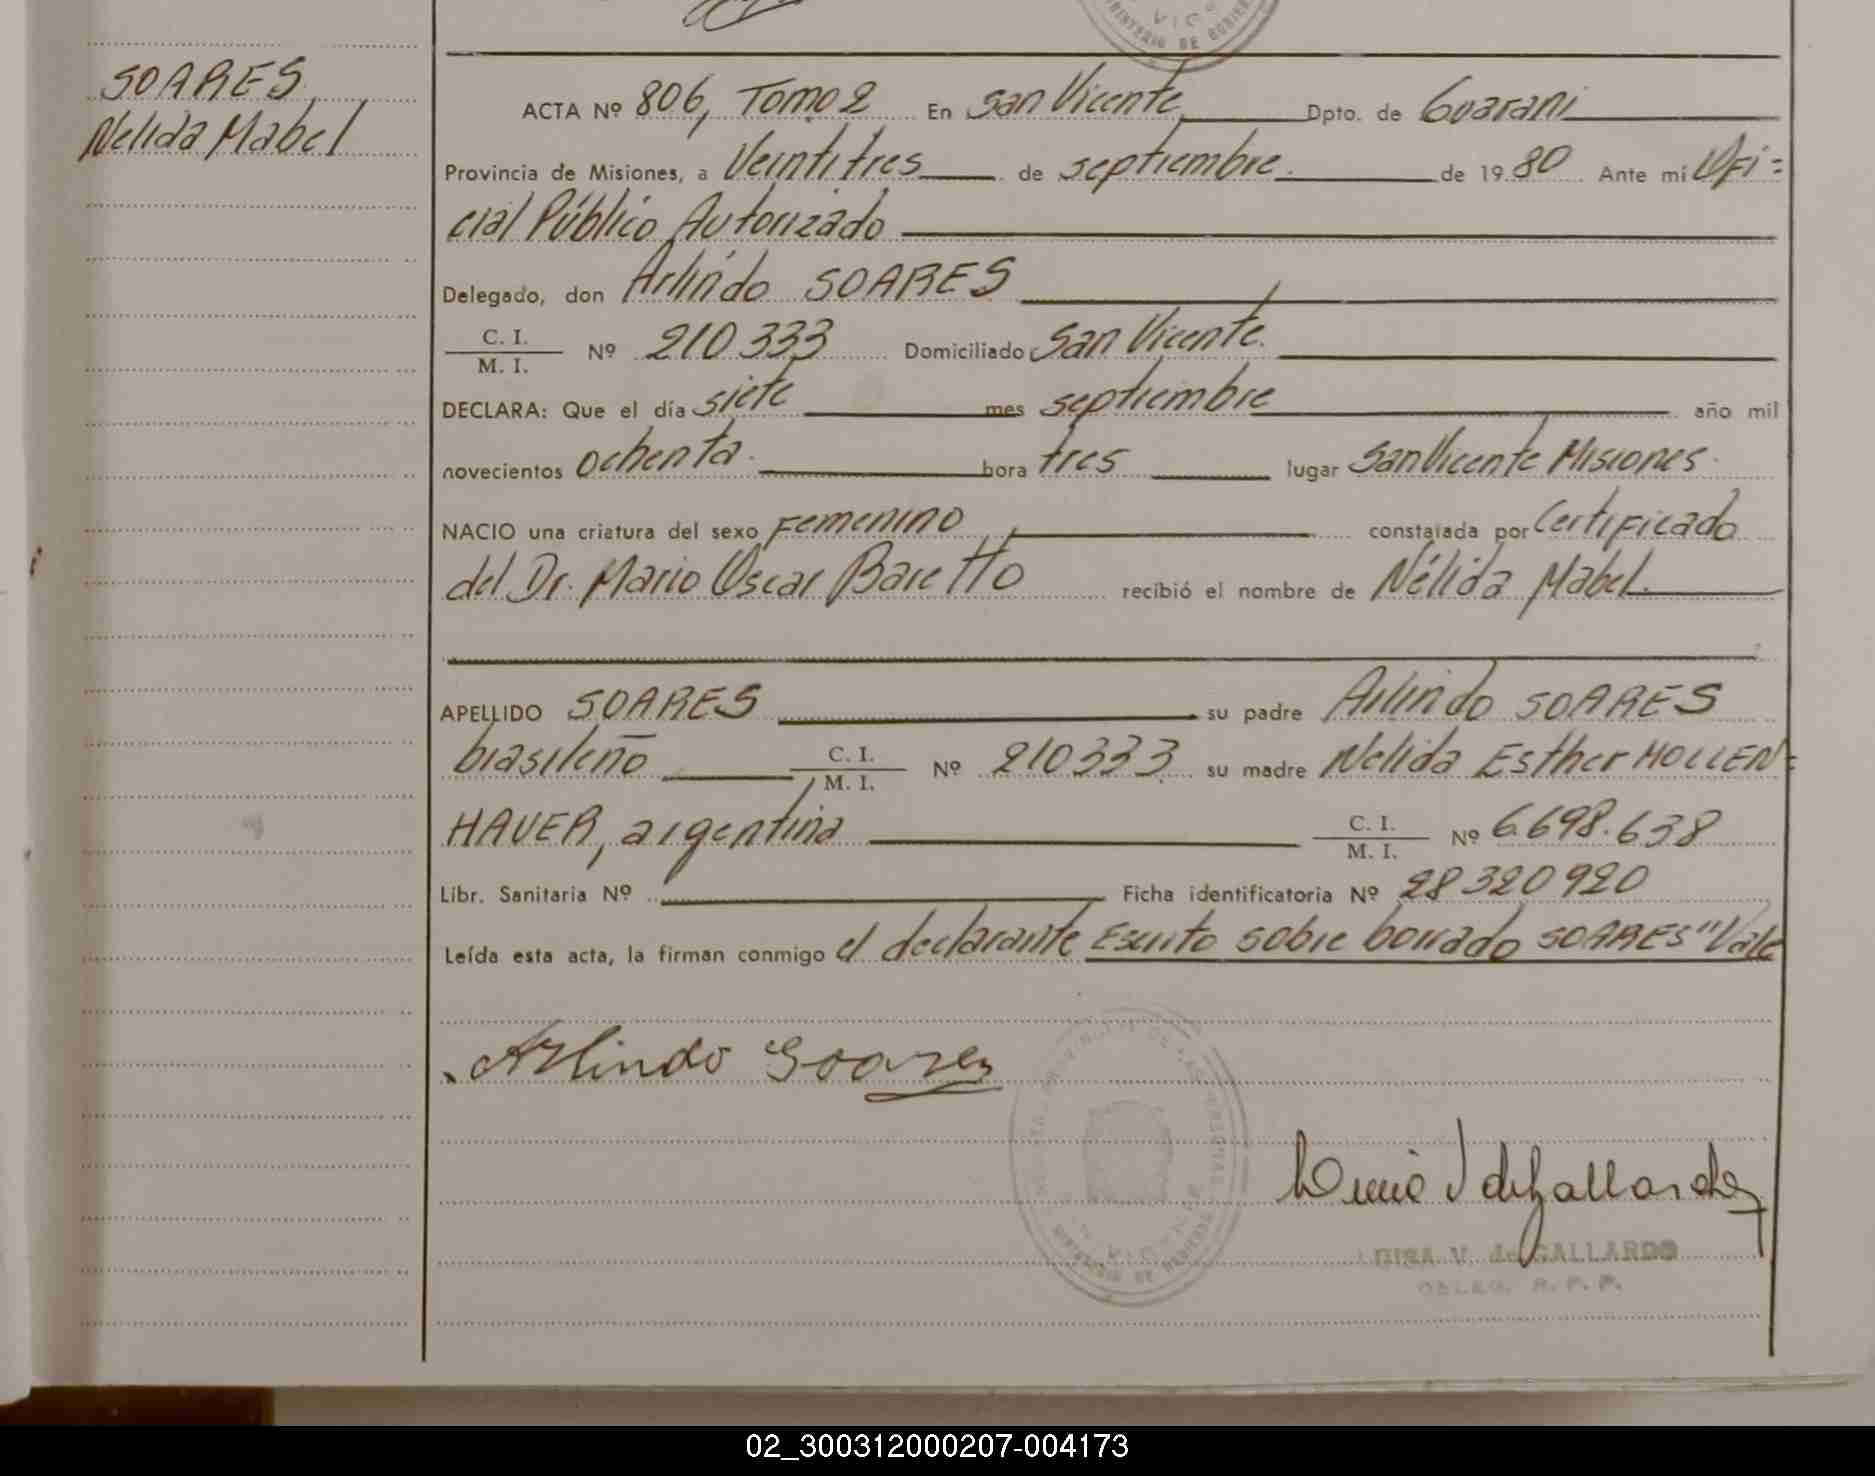 SOARES
Nelida Mabel
ACTA Nº 806, Tomo 2 En San Vicente Dpto. de Guarani
Provincia de Misiones, a Veintitres de septiembre de 1980 Ante mí Ofi=
cial Público Autorizado
Delegado, don Arlindo SOARES
C. I.
M. I. Nº 210333 Domiciliado San Vicente.
DECLARA: Que el día siete mes septiembre año mil
novecientos ochenta. hora tres lugar San Vicente Misiones.
NACIO una criatura del sexo Femenino constatada por Certificado
del Dr. Mario Oscar Baretto recibió el nombre de Nélida Mabel.
APELLIDO SOARES su padre Arlindo SOARES
brasileño C. I.
M. I. Nº 210333 su madre Nelida Esther HOLLEN=
HAUER, argentina C. I.
M. I. Nº 6.698.638
Libr. Sanitaria Nº Ficha identificatoria Nº 28320920
Leída esta acta, la firman conmigo el declarante Escrito sobre borrado SOARES" Vale
Arlindo Soares
LUISA V. de GALLARDO
DELEG. R. P. P.
MINISTERIO DE GOBIERNO
02_300312000207-004173